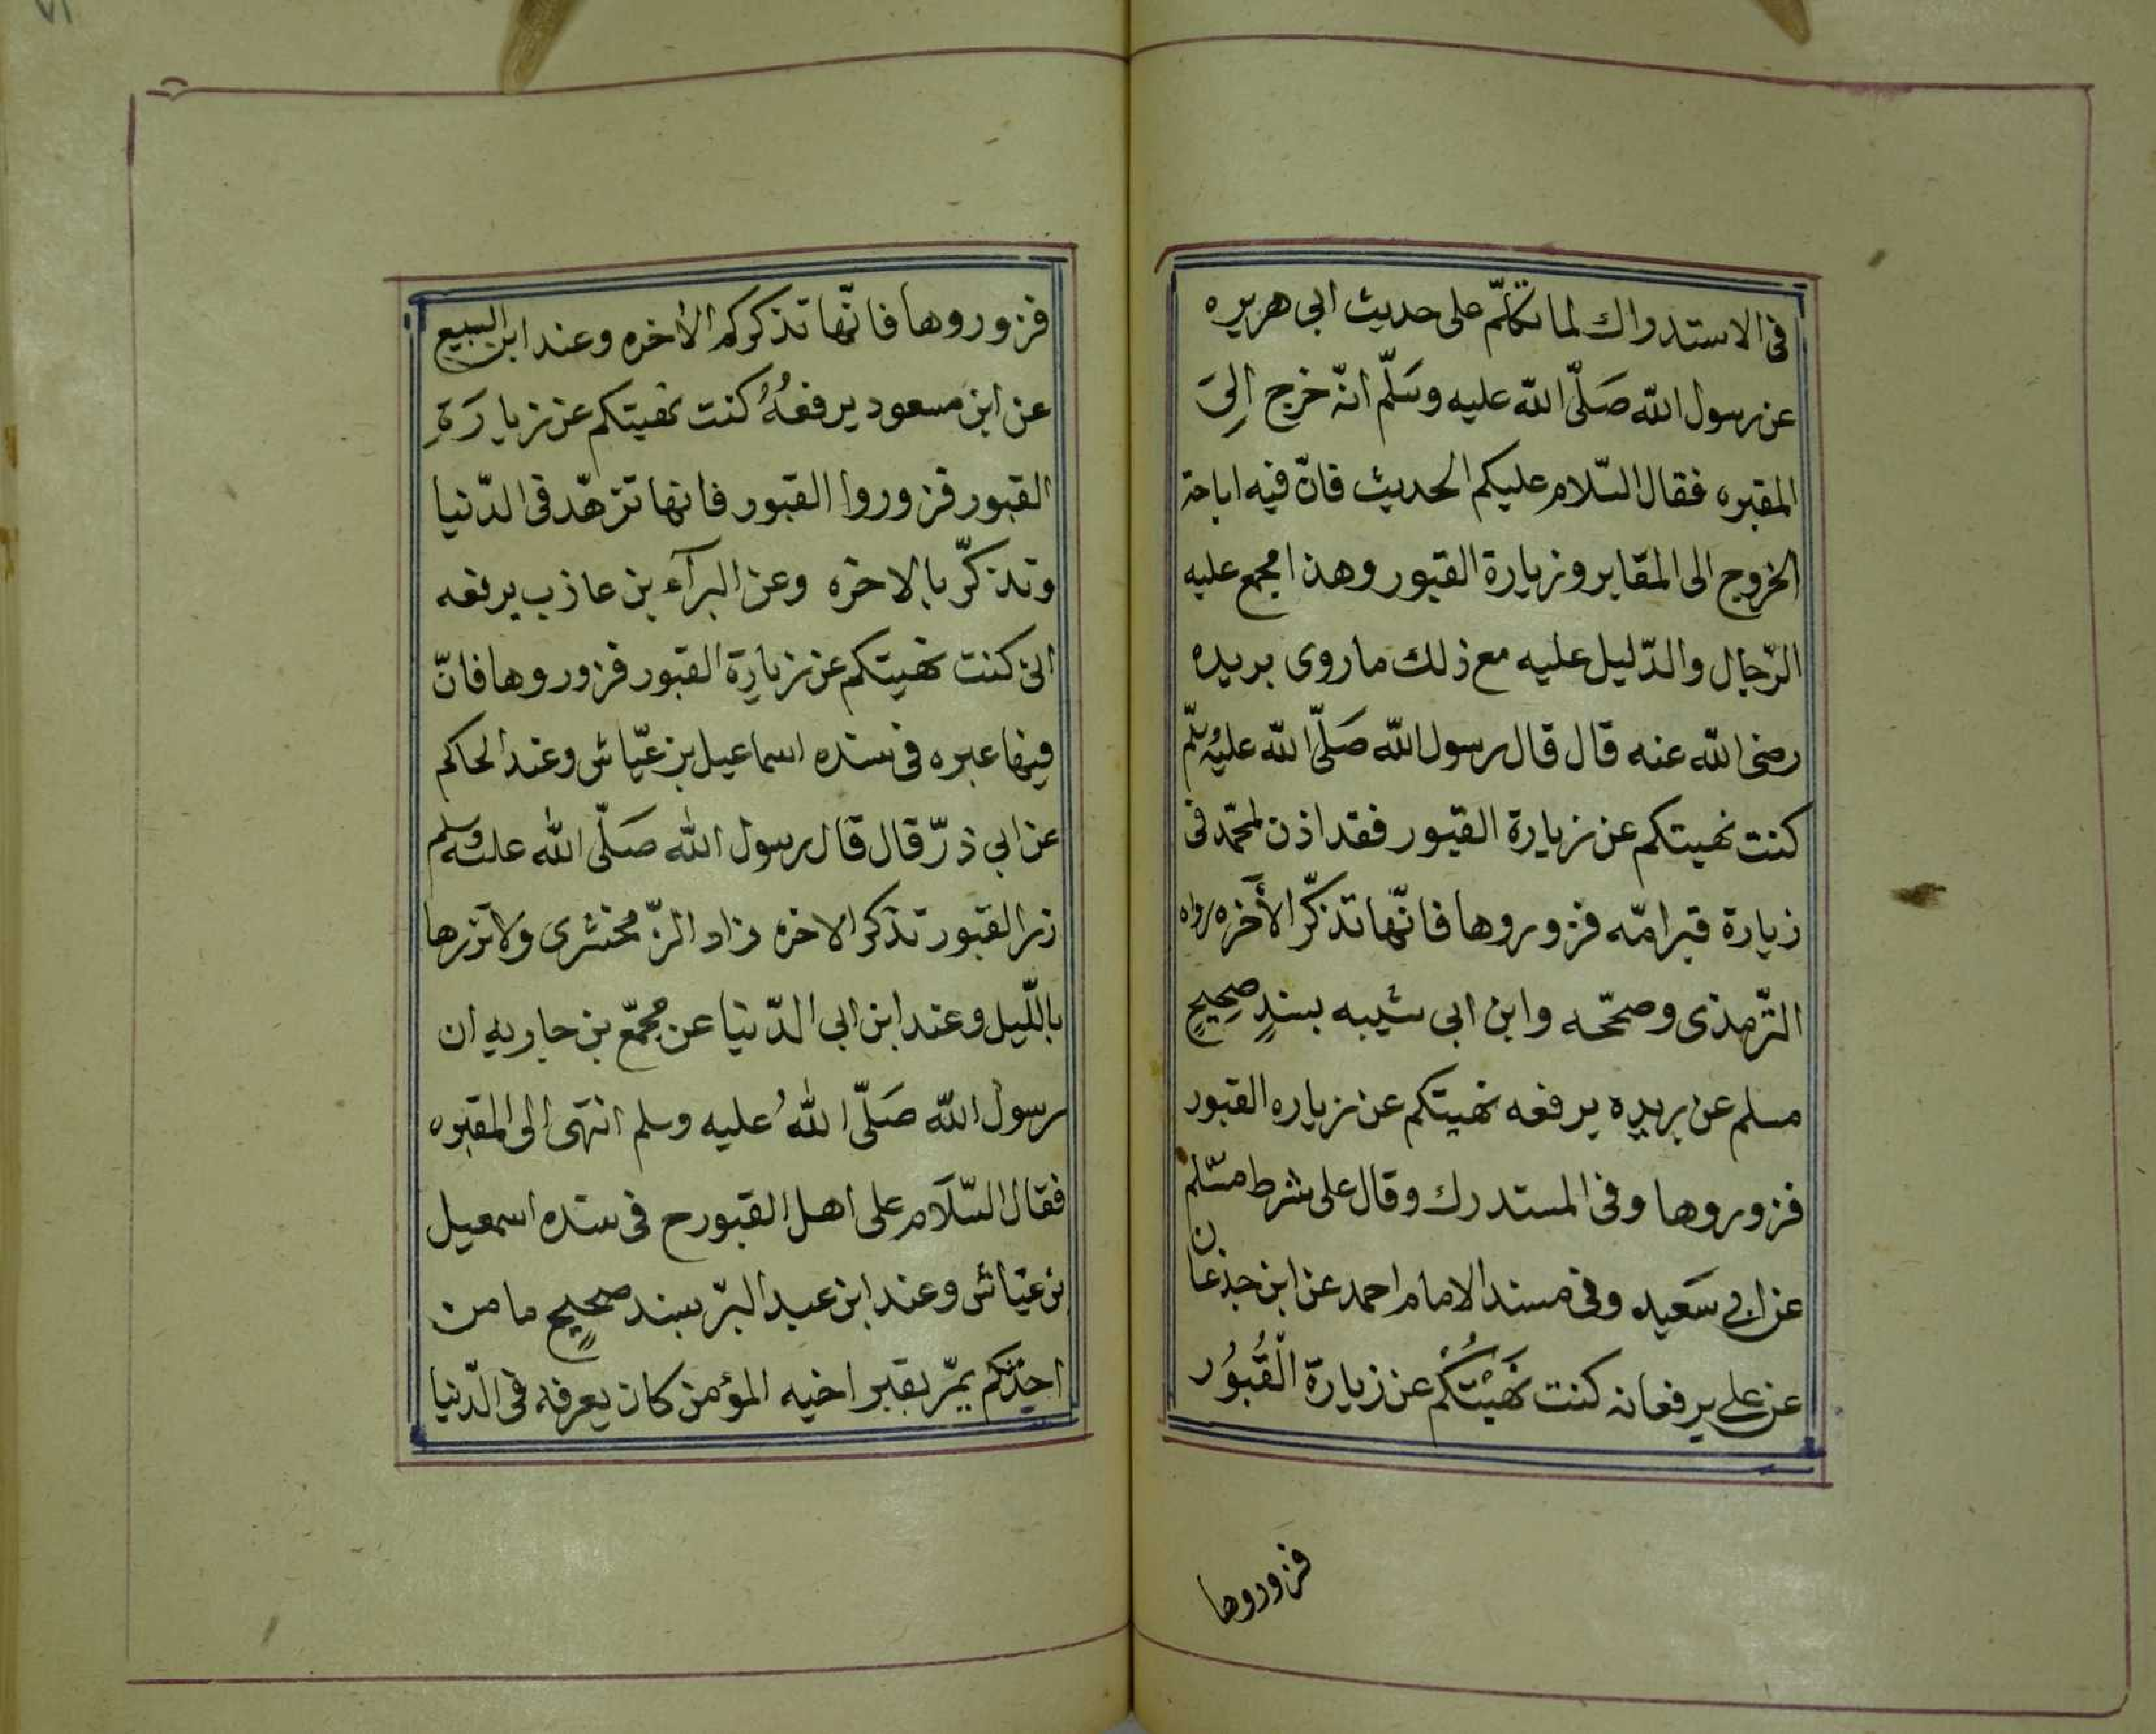 فى الاستدراك لما تكلّم على حديث ابى هريره
عن رسول الله صَلّى الله عليه وسَلّم انّه خرج اِلىَ
المقبره فقال السّلام عليكم الحديث فانّ فيه اباحة
الخروج الى المقابر وزيارة القبور وهذا مجمع عليه
الرّجال والدّليل عليه مع ذلك ما روى بريده
رضى الله عنه قال قال رسول الله صَلّى الله عليه وسلّم
كنت نهيتكم عن زيارة القبور فقد اذن لمحمّد فى
زيارة قبر امّه فزوروها فانّها تذكّر الأخره رواه
التّرمذى وصحّحه وابن ابى شيبه بسندٍ صحِيحٍ
مسلم عن بريده يرفعه نهيتكم عن زياره القبور
فزوروها وفى المستدرك وقال على شرط مسّلم
عن ابى سَعيد وفى مسند الامام احمد عن ابن جذعان
عن على يرفعانه كنت نَهَيْتُكُم عن زيارة الْقُبوُر
فزوروها
فزوروها فانّها تذكركم الاخره وعند ابن البيع
عن ابن مسعود يرفعهُ كنت نهيتكم عن زيارَةِ
القبور فزوروا القبور فانها تزهّد فى الدّنيا
وتذكّر بالاخره وعن البرآء بن عازب يرفعه
انى كنت نهيتكم عن زيارة القبور فزوروها فانّ
فيها عبره فى سنده اسماعيل بن عيّاش وعند الحاكم
عن ابي ذرّ قال قال رسول الله صَلّى الله عليه وسلم
زر القبور تذكر الاخره زاد الزّمخشرى ولا تزرها
باللّيل وعند ابن ابى الدّنيا عن مجمّع بن جاريه ان
رسول الله صَلّى اللهُ عليه وسلم انتهى الى المقبره
فقال السّلَام على اهل القبور ح فى سنده اسمعيل
بن عيّاش وعند ابن عبد البرّ بسند صحيحٍ ما من
احدٍ يمّر بقبر اخيه المؤمن كان يعرفه فى الدّنيا